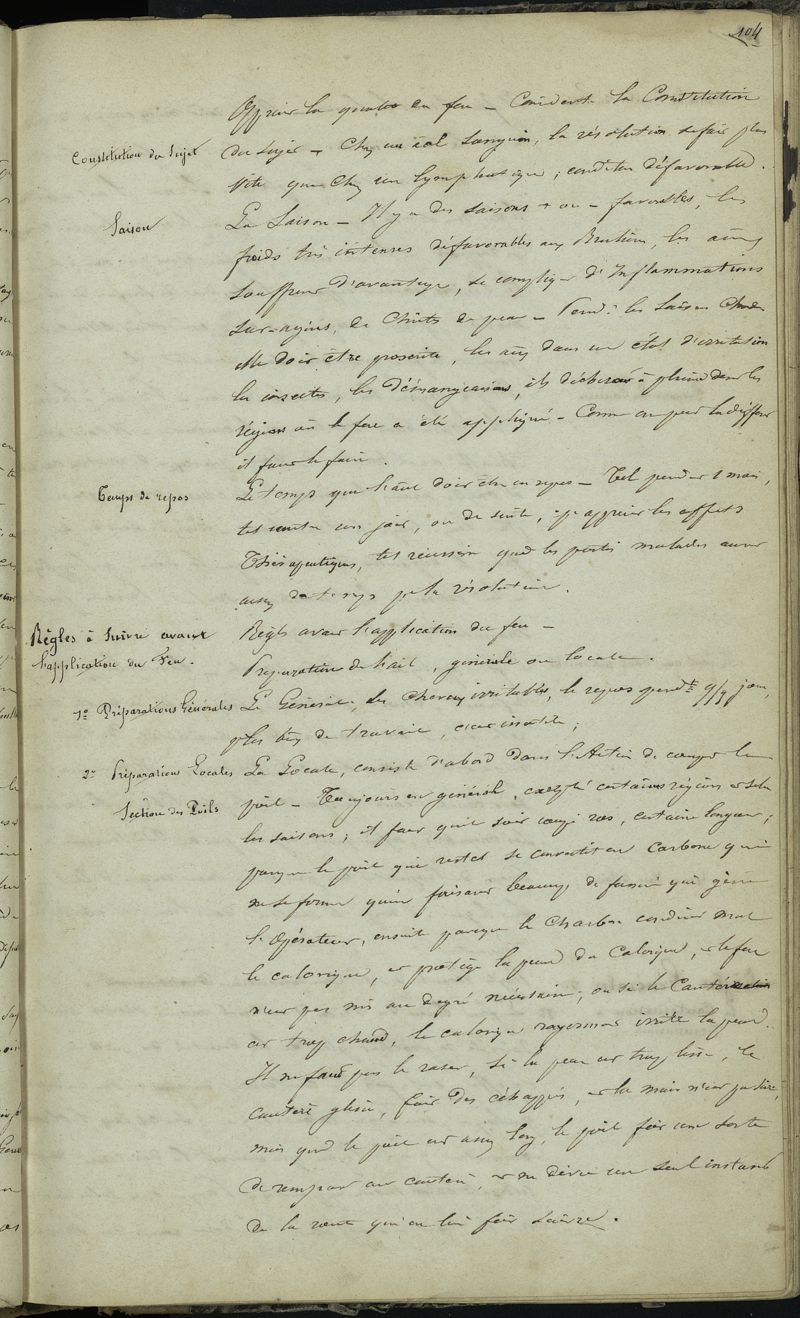 104
Apprécier la quantité du feu – Considérer la Constitution
Constitution du Sujet
du sujet – Chez un col Sanguin, la résolution se fait plus
vite que chez un lymphatique ; condition défavorable.
Saison
La Saison – Il y a des saisons + ou – favorables, les
froids très intenses défavorables aux Brulures, les anx
souffrent d'avantage, se complique d'Inflammations
Sur-aigües, de Chute de peau – Pendt les Saisons Chaudes
elle doit être proscrite, les anx dans un état d'irritation
les insectes, les démangeaisons, ils déchirent à pleine dent les
régions où le feu a été appliqué – Comme on peut la différer
il faut le faire.
Temps de repos
Le temps que l'anl doit être en repos – Tel pendant 1 mois,
tel autre un jour, ou de suite, pr apprécier les effets
Thérapeutiques, tel réussira quand les parties malades auront
assez de temps pr la résolution.
Règles à Suivre avant
l'application du Feu.
Règles avant l'application du feu –
Préparation de l'anl, générale ou locale.
1° Préparations Générales
La Générale, les chevaux irritables, le repos pendt q/q jours,
pr les bêtes de travail, c'est inutile ;
2° Préparations Locales
La Locale, consiste d'abord dans l'Action de couper le
Section des Poils
poil – Toujours en général, excepté certaines régions et selon
les saisons ; il faut qu'il soit coupé ras, certaine longueur ;
parceque le poil qui reste se convertit en carbone qui
ne se forme qu'en faisant beaucoup de fumée qui gène
l'Opérateur, ensuite parceque le Charbon conduit mal
le calorique, et protège la peau du Calorique, et le feu
n'est pas mis au degré nécessaire ; ou si le Cautère
est trop chaud, le calorique rayonnant irrite la peau.
Il ne faut pas le raser, si la peau est trop lisse, le
cautère glisse, fait des échappés, et la main n'est pas sûre,
mais quand le poil est assez long, le poil fait une sorte
de rempart au cautère, et ne dévie un seul instant
de la route qu'on lui fait suivre.